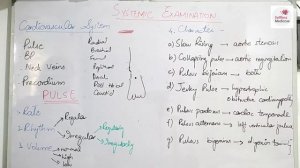 SYSTEMIC EXAMINATION
Cardiovascular System
Pulse
BP
Neck Veins
Precordium
Radial
Brachial
Carotid
Femoral
Popliteal
PULSE
Rate
Rhythm
Regular
Irregular
Regularly
Irregularly
3. Volume
normal
high
4. Character -
a) Slow Rising → aortic stenosis
b) Collapsing pulse → aortic regurgitation
c) Pulsus → both
d) Jerky Pulse → hypertrophic
obstructive cardiomyopathy
e) Pulsus paradoxus → cardiac tamponade
f) Pulsus alternans → left ventricular failure
g) Pulsus → digoxin toxicity